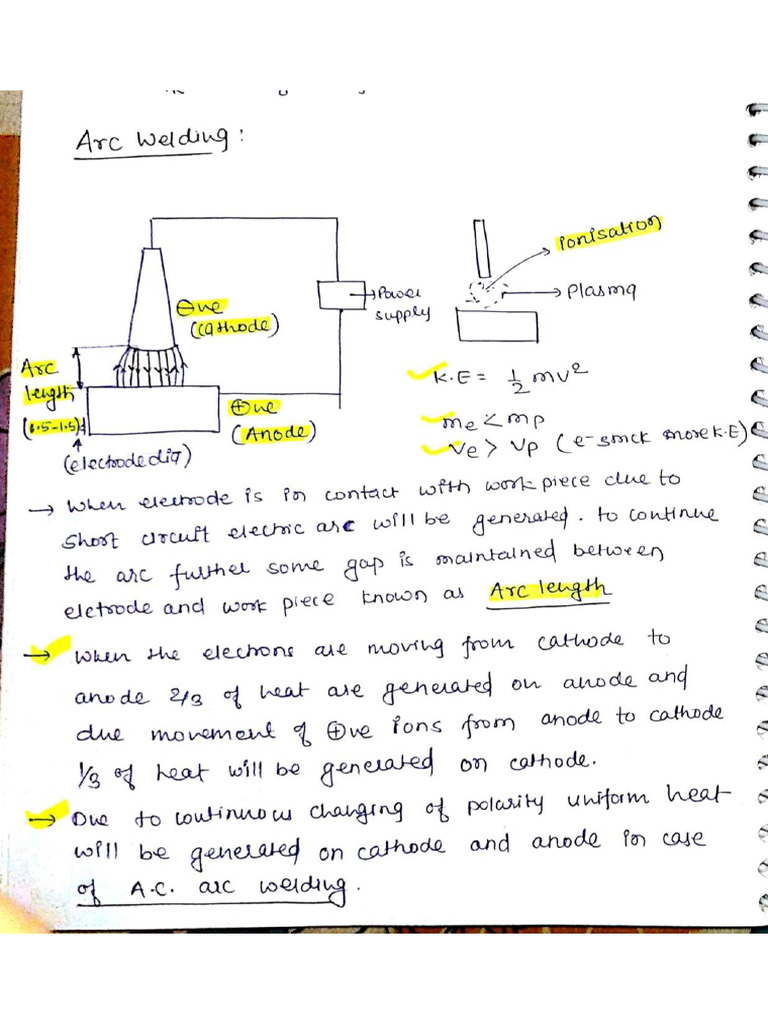 Arc Welding :
ionisation
Plasma
Power
supply
⊖ve
(cathode)
Arc
length
(0.5-1.5)d
(electrode dia)
⊕ve
(Anode)
K.E = 1/2 mv²
me < mp
Ve > Vp (e- struck more K.E)
→ When electrode is in contact with work piece due to
short circuit electric arc will be generated. to continue
the arc further some gap is maintained between
eletrode and work piece known as Arc length
→ When the electrons are moving from cathode to
anode 2/3 of heat are generated on anode and
due movement of ⊕ve ions from anode to cathode
1/3 of heat will be generated on cathode.
→ Due to continuous changing of polarity uniform heat
will be generated on cathode and anode in case
of A.C. arc welding.